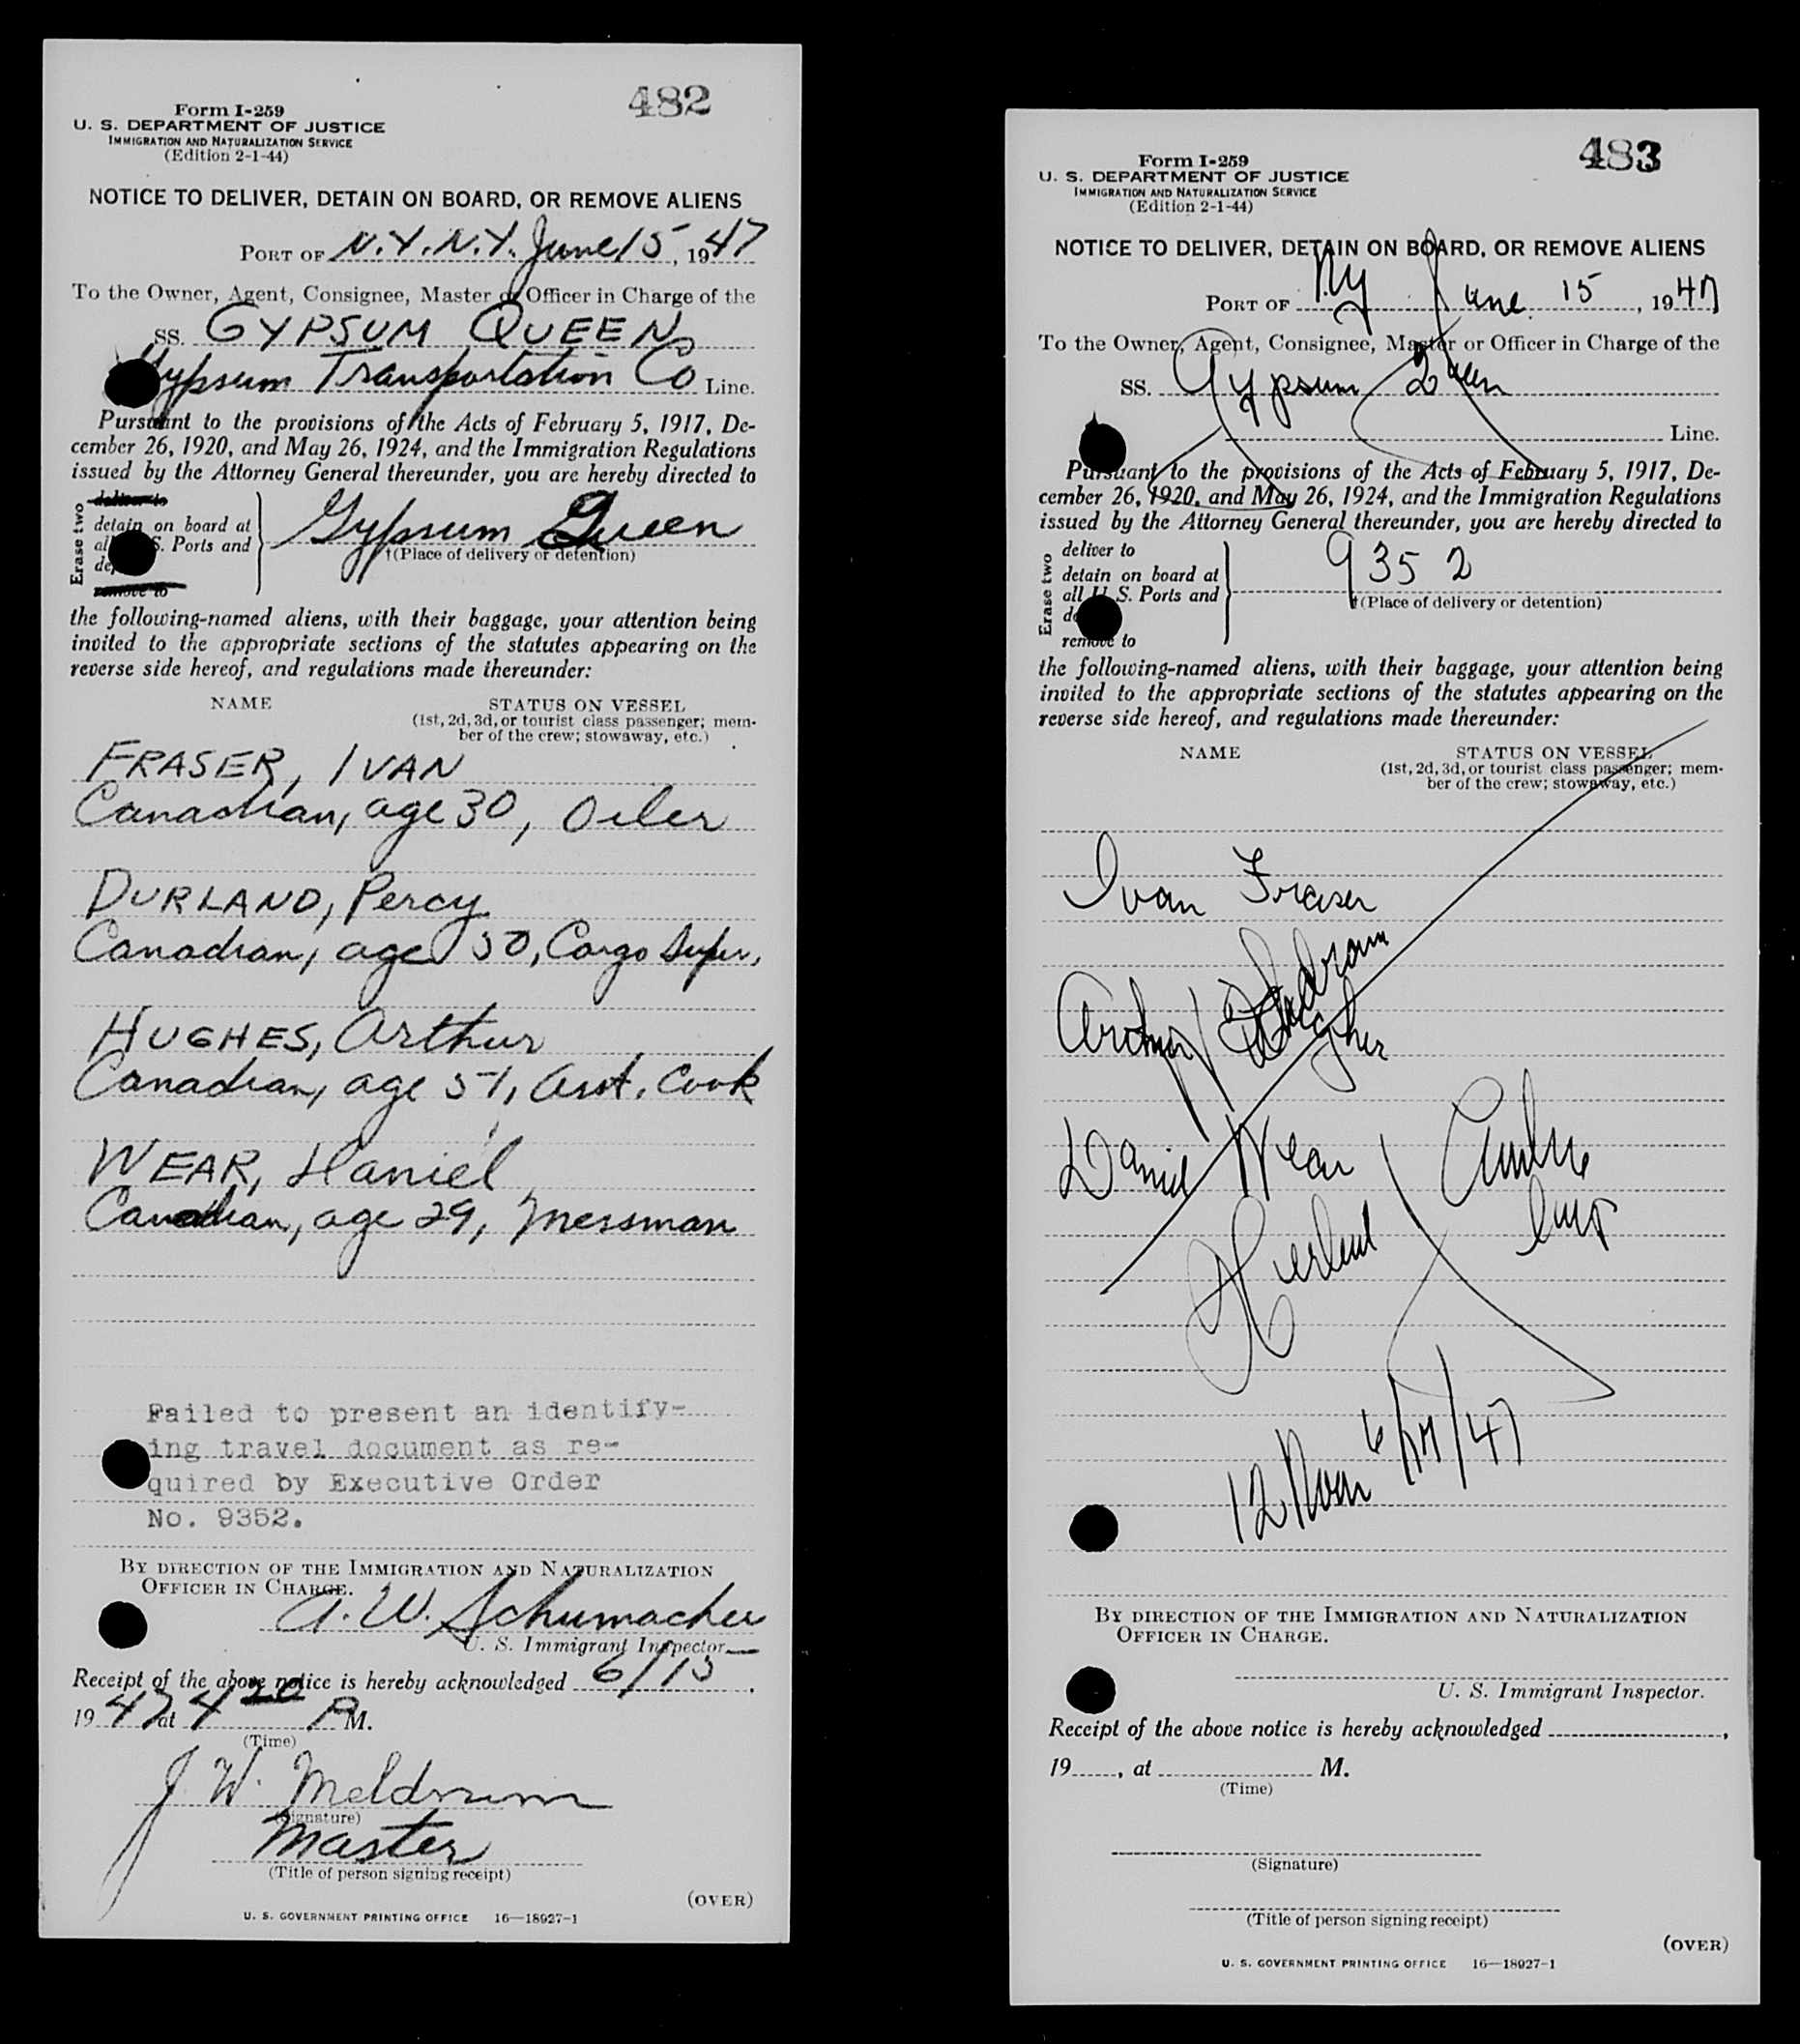 482
Form I-259
U. S. DEPARTMENT OF JUSTICE
IMMIGRATION AND NATURALIZATION SERVICE
(Edition 2-1-44)
NOTICE TO DELIVER, DETAIN ON BOARD, OR REMOVE ALIENS
PORT OF N.Y. N.Y. June 15, 1947
To the Owner, Agent, Consignee, Master or Officer in Charge of the
SS. GYPSUM QUEEN
Gypsum Transportation Co Line.
Pursuant to the provisions of the Acts of February 5, 1917, De-
cember 26, 1920, and May 26, 1924, and the Immigration Regulations
issued by the Attorney General thereunder, you are hereby directed to
Erase two
deliver to
detain on board at
all U. S. Ports and
remove to
Gypsum Queen
†(Place of delivery or detention)
the following-named aliens, with their baggage, your attention being
invited to the appropriate sections of the statutes appearing on the
reverse side hereof, and regulations made thereunder:
NAME STATUS ON VESSEL
(1st, 2d, 3d, or tourist class passenger; mem-
ber of the crew; stowaway, etc.)
FRASER, IVAN
Canadian, age 30, Oiler
DURLAND, Percy
Canadian, age 50, Cargo Super,
HUGHES, Arthur
Canadian, age 51, Asst. Cook
WEAR, Daniel
Canadian, age 29, Messman
Failed to present an identify-
ing travel document as re-
quired by Executive Order
No. 9352.
BY DIRECTION OF THE IMMIGRATION AND NATURALIZATION
OFFICER IN CHARGE.
A. W. Schumacher
U. S. Immigrant Inspector
Receipt of the above notice is hereby acknowledged 6/15,
1947 at 4 20 P M.
(Time)
J W. Meldrum
(Signature)
Master
(Title of person signing receipt)
(OVER)
U. S. GOVERNMENT PRINTING OFFICE 16—18927-1
483
Form I-259
U. S. DEPARTMENT OF JUSTICE
IMMIGRATION AND NATURALIZATION SERVICE
(Edition 2-1-44)
NOTICE TO DELIVER, DETAIN ON BOARD, OR REMOVE ALIENS
PORT OF NY June 15, 1947
To the Owner, Agent, Consignee, Master or Officer in Charge of the
SS. Gypsum Queen
Line.
Pursuant to the provisions of the Acts of February 5, 1917, De-
cember 26, 1920, and May 26, 1924, and the Immigration Regulations
issued by the Attorney General thereunder, you are hereby directed to
Erase two
deliver to
detain on board at
all U. S. Ports and
remove to
9352
†(Place of delivery or detention)
the following-named aliens, with their baggage, your attention being
invited to the appropriate sections of the statutes appearing on the
reverse side hereof, and regulations made thereunder:
NAME STATUS ON VESSEL
(1st, 2d, 3d, or tourist class passenger; mem-
ber of the crew; stowaway, etc.)
Ivan Fraser
Arthur
Daniel Wear
12 Noon 6/17/47
BY DIRECTION OF THE IMMIGRATION AND NATURALIZATION
OFFICER IN CHARGE.
U. S. Immigrant Inspector.
Receipt of the above notice is hereby acknowledged ,
19 , at M.
(Time)
(Signature)
(Title of person signing receipt)
(OVER)
U. S. GOVERNMENT PRINTING OFFICE 16—18927-1